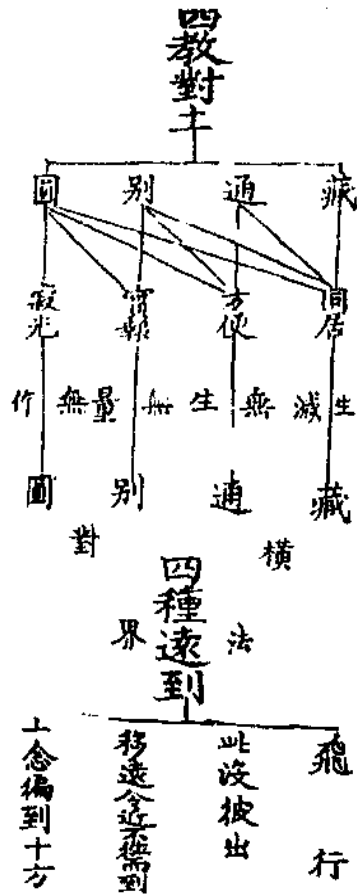 四教對土
藏
通
別
圓
同居
方便
實報
寂光
生滅
無生
無量
無作
藏
通
別
圓
橫
對
四種遠到
法
界
飛行
此沒彼出
移遠令近不往而到
一念徧到十方